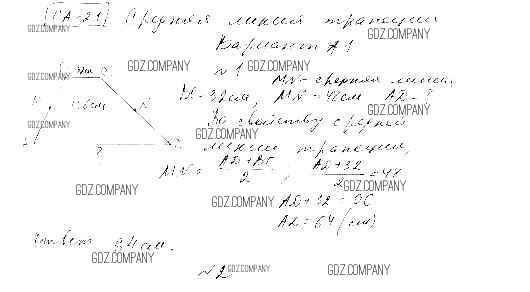 СА-21 Средняя линия трапеции
Вариант А1
№1
MN - средняя линия,
ВС = 32см, MN = 48см AD - ?
По свойству средней
линии трапеции,
MN = (AD + BC)/2 , (AD + 32)/2 = 48
AD + 32 = 96
AD = 64 (см)
Ответ 64 см.
№2
GDZ.COMPANY
GDZ.COMPANY
GDZ.COMPANY
GDZ.COMPANY
GDZ.COMPANY
GDZ.COMPANY
GDZ.COMPANY
GDZ.COMPANY
GDZ.COMPANY
GDZ.COMPANY
GDZ.COMPANY
GDZ.COMPANY
GDZ.COMPANY
GDZ.COMPANY